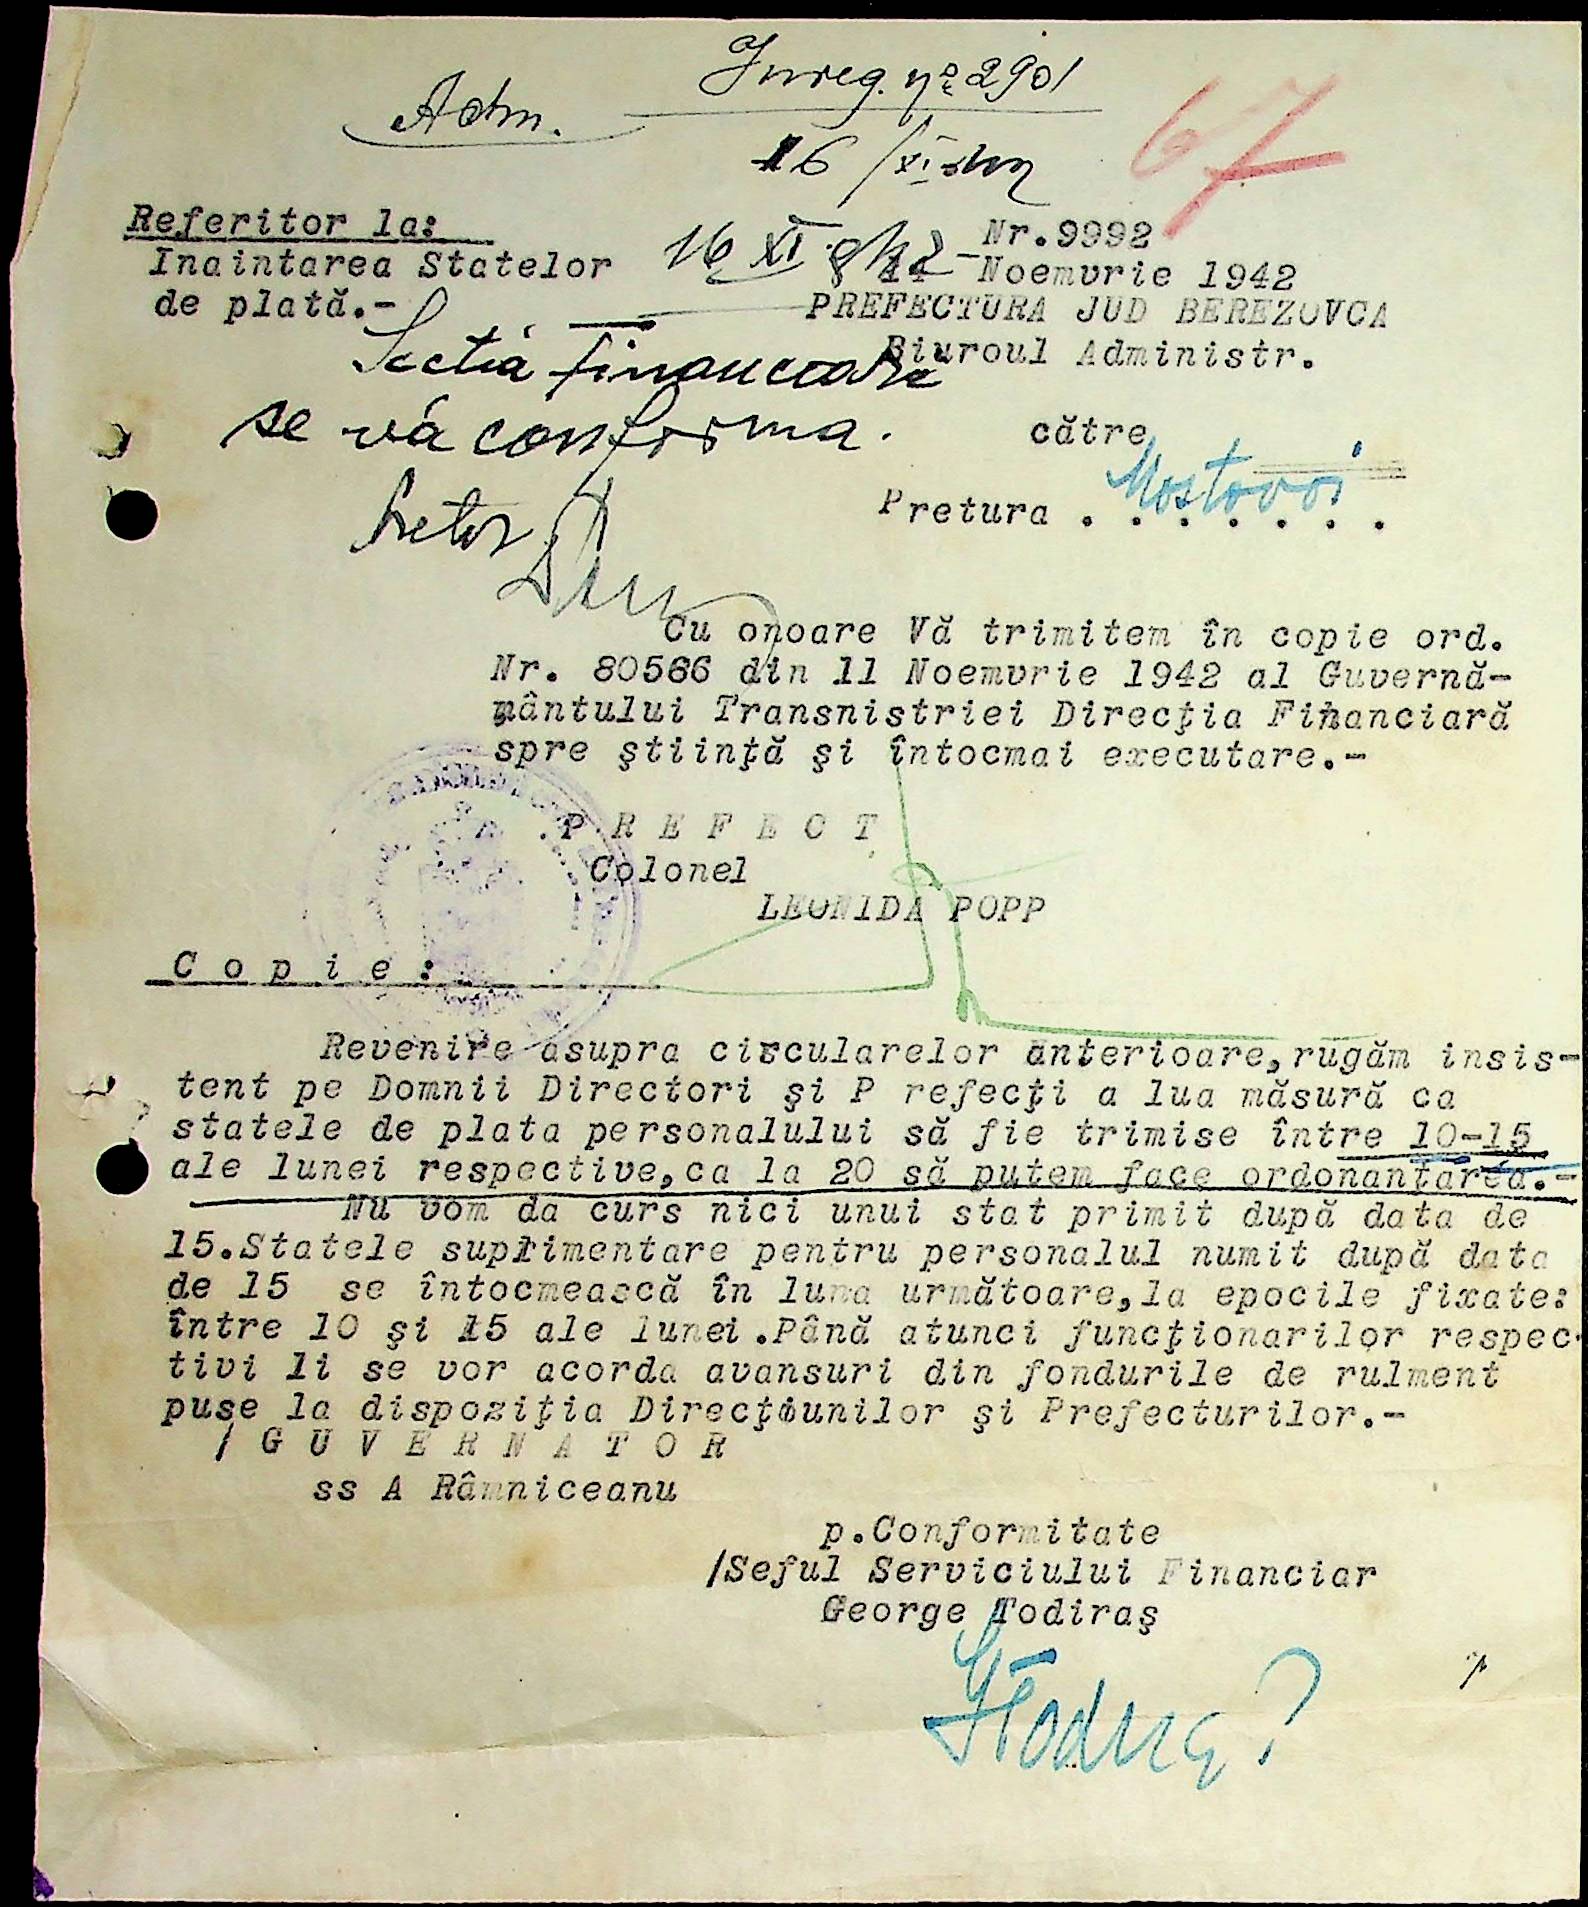 Inreg. No 2901
Adm.
16/XI
67
Referitor la:
Inaintarea Statelor
de plată.-
16 XI
Nr.9992
Noemvrie 1942
PREFECTURA JUD BEREZOVCA
Biuroul Administr.
Sectia financiara
se va conforma.
către
Pretura . Mostovoi . . . . . .
Pretor
Cu onoare Vă trimitem în copie ord.
Nr. 80566 din 11 Noemvrie 1942 al Guvernă-
mântului Transnistriei Direcţia Financiară
spre ştiinţă şi întocmai executare.-
P R E F E C T
Colonel
LEONIDA POPP
C o p i e :
Revenire asupra circularelor anterioare,rugăm insis-
tent pe Domnii Directori şi P refecţi a lua măsură ca
statele de plata personalului să fie trimise între 10-15
ale lunei respective,ca la 20 să putem face ordonanţarea.-
Nu vom da curs nici unui stat primit după data de
15.Statele suplimentare pentru personalul numit după data
de 15 se întocmească în luna următoare,la epocile fixate:
între 10 şi 15 ale lunei.Până atunci funcţionarilor respec-
tivi li se vor acorda avansuri din fondurile de rulment
puse la dispoziţia Direcţiunilor şi Prefecturilor.-
/ G U V E R N A T O R
ss A Râmniceanu
p.Conformitate
/Seful Serviciului Financiar
George Todiraş